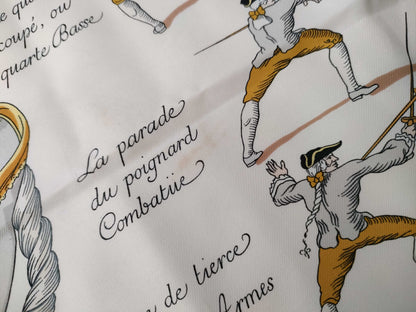 e qua
coupé, ou
quarte Basse
La parade
du poignard
Combatüe
de tierce
Armes